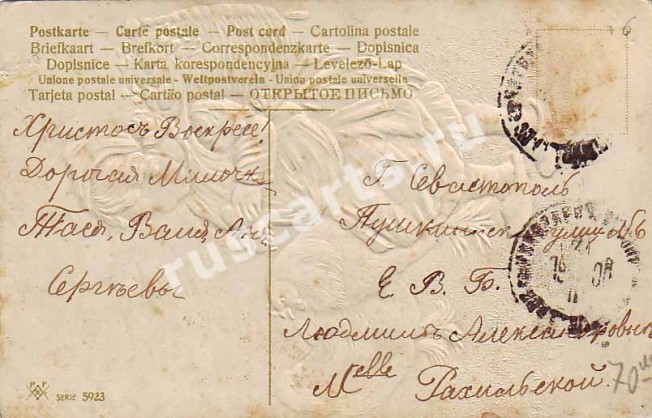 Postkarte — Carte postale — Post card — Cartolina postale
Briefkaart — Brefkort — Correspondenzkarte — Dopisnica
Dopisnice — Karta korespondencyjna — Levelező-Lap
Unione postale universale - Weltpostverein - Union postale universelle
Tarjeta postal — Cartão postal — ОТКРЫТОЕ ПИСЬМО
Христосъ Воскресе!
Дорогая Милочка
Тася, Ваня, Аня
Сергѣевы
Г. Севастополь
Пушкинская улица № 6
Е. В. Б.
Людмилѣ Александровнѣ
Melle Рахильской
70
SERIE 5923
08
ruscarts.ru